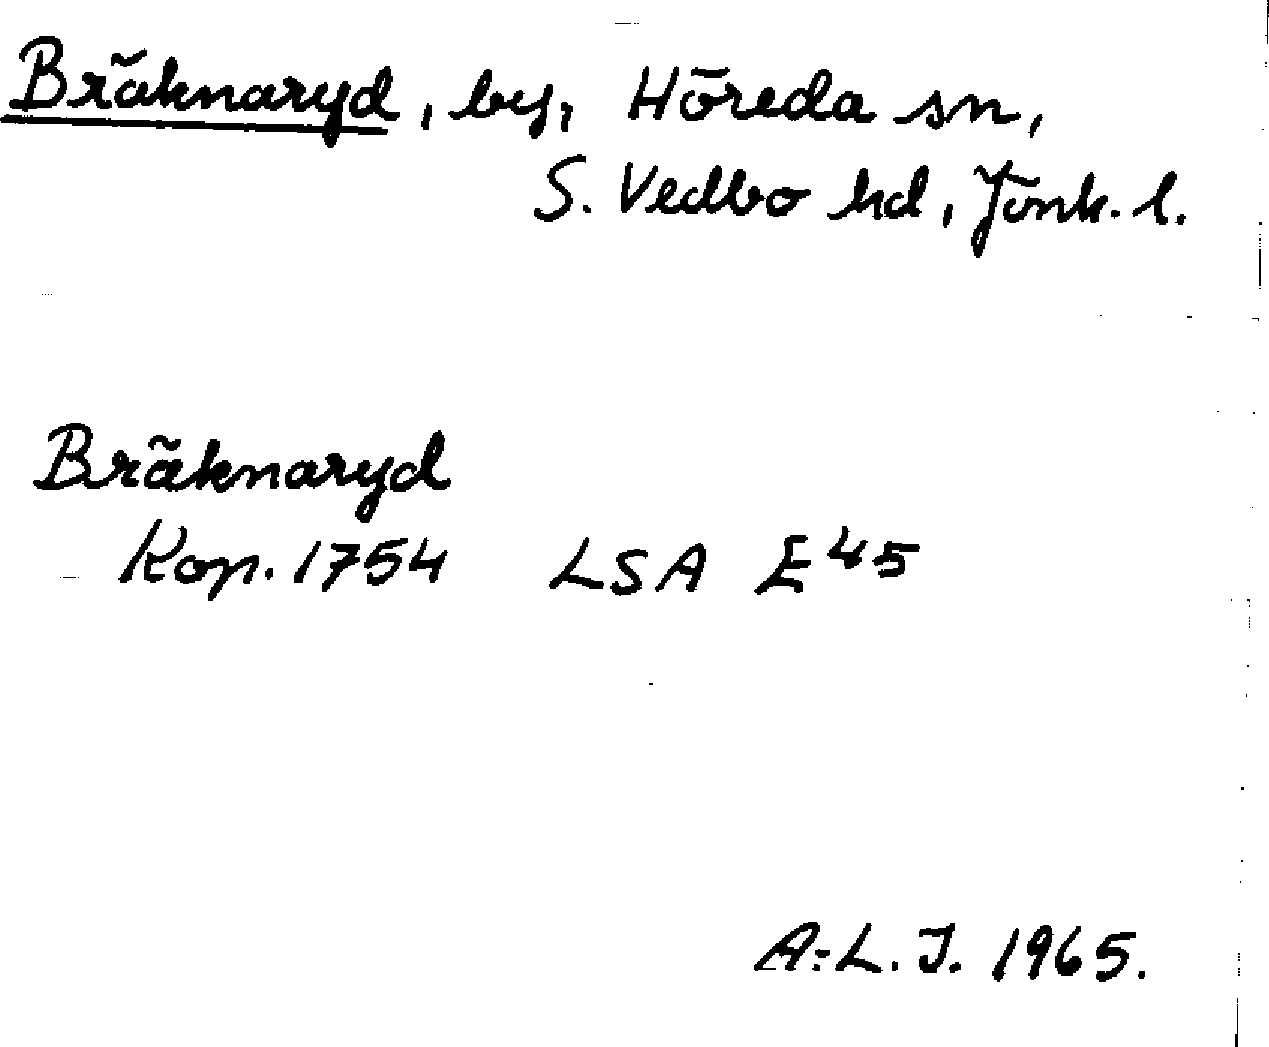 Bräknaryd, by, Höreda sn,
S. Vedbo hd, Jönk. l.
Bräknaryd
Kop. 1754 LSA E 45
A-L. J. 1965.